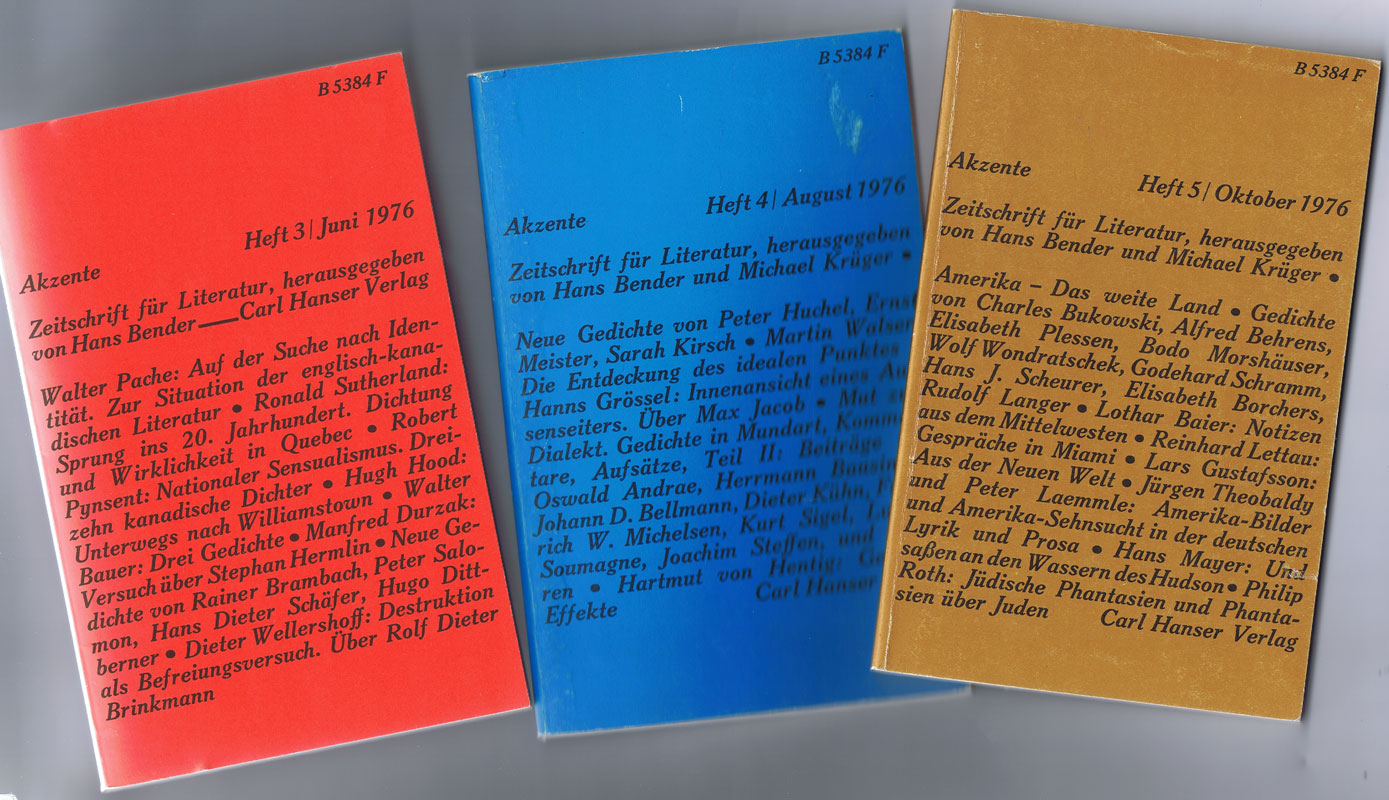 B 5384 F
Heft 3 | Juni 1976
Akzente
Zeitschrift für Literatur, herausgegeben
von Hans Bender — Carl Hanser Verlag
Walter Pache: Auf der Suche nach Iden-
tität. Zur Situation der englisch-kana-
dischen Literatur • Ronald Sutherland:
Sprung ins 20. Jahrhundert. Dichtung
und Wirklichkeit in Quebec • Robert
Pynsent: Nationaler Sensualismus. Drei-
zehn kanadische Dichter • Hugh Hood:
Unterwegs nach Williamstown • Walter
Bauer: Drei Gedichte • Manfred Durzak:
Versuch über Stephan Hermlin • Neue Ge-
dichte von Rainer Brambach, Peter Salo-
mon, Hans Dieter Schäfer, Hugo Ditt-
berner • Dieter Wellershoff: Destruktion
als Befreiungsversuch. Über Rolf Dieter
Brinkmann
B 5384 F
Heft 4 | August 1976
Akzente
Zeitschrift für Literatur, herausgegeben
von Hans Bender und Michael Krüger •
Neue Gedichte von Peter Huchel, Ernst
Meister, Sarah Kirsch • Martin Walser
Die Entdeckung des idealen Punktes
Hanns Grössel: Innenansicht eines Au
senseiters. Über Max Jacob • Mut
Dialekt. Gedichte in Mundart, Komm
tare, Aufsätze, Teil II: Beiträge
Oswald Andrae, Herrmann Bausin
Johann D. Bellmann, Dieter Kühn,
rich W. Michelsen, Kurt Sigel,
Soumagne, Joachim Steffen, und
ren • Hartmut von Hentig:
Effekte
Carl Hanser
B 5384 F
Akzente
Heft 5 | Oktober 1976
Zeitschrift für Literatur, herausgegeben
von Hans Bender und Michael Krüger •
Amerika – Das weite Land • Gedichte
von Charles Bukowski, Alfred Behrens,
Elisabeth Plessen, Bodo Morshäuser,
Wolf Wondratschek, Godehard Schramm,
Hans J. Scheurer, Elisabeth Borchers,
Rudolf Langer • Lothar Baier: Notizen
aus dem Mittelwesten • Reinhard Lettau:
Gespräche in Miami • Lars Gustafsson:
Aus der Neuen Welt • Jürgen Theobaldy
und Peter Laemmle: Amerika-Bilder
und Amerika-Sehnsucht in der deutschen
Lyrik und Prosa • Hans Mayer: Und
saßen an den Wassern des Hudson • Philip
Roth: Jüdische Phantasien und Phanta-
sien über Juden Carl Hanser Verlag